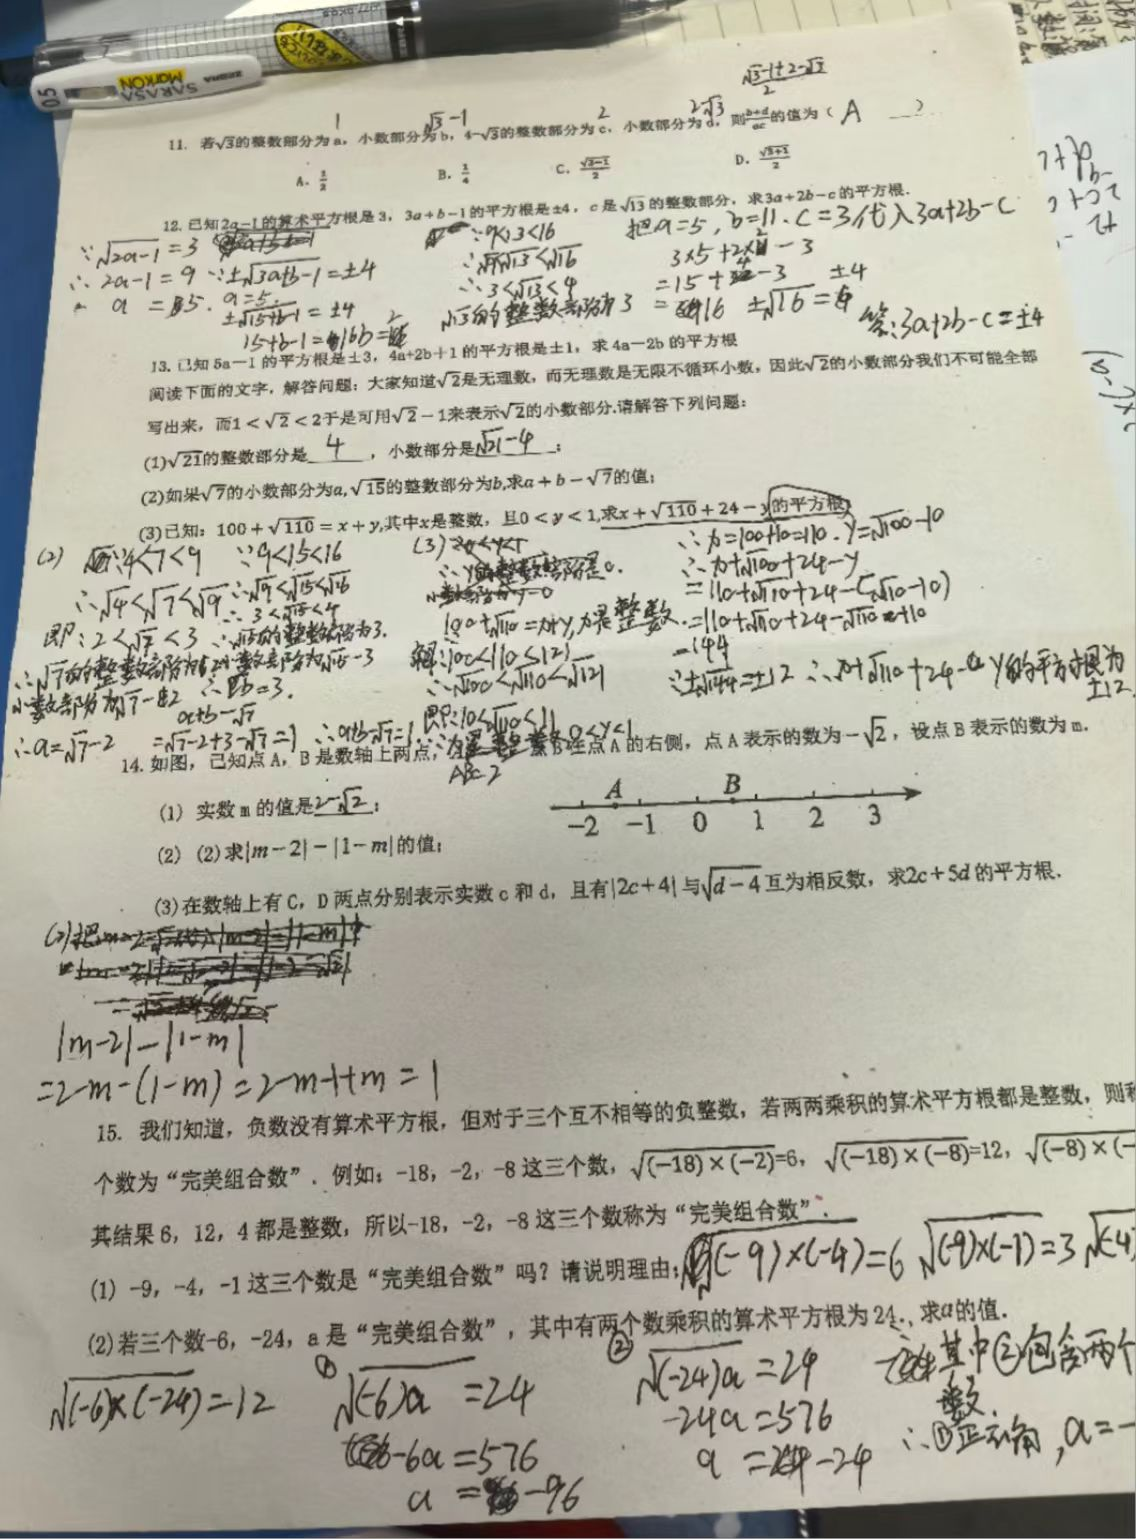 SARASA
MarkON
ZEBRA
05
√3-1+2-√3
2
1 √3-1 2 2-√3
11. 若√3的整数部分为a，小数部分为b，4-√3的整数部分为c，小数部分为d，则(b+d)/ac的值为（ A ）
A. 1/2 B. 1/4 C. (√3-1)/2 D. (√3+1)/2
12. 已知2a-1的算术平方根是3，3a+b-1的平方根是±4，c是√13的整数部分，求3a+2b-c的平方根.
∵√2a-1=3
∴2a-1=9 ∵±√3a+b-1=±4
a=5. a=5.
±√15+b-1=±4
15+b-1=16 b=2
∵9<13<16
∴√9<√13<√16
∴3<√13<4
√13的整数部分为3
把a=5，b=11.c=3代入3a+2b-c
3×5+2×2-3
=15+4-3 ±4
=16 ±√16=
答:3a+2b-c=±4
13. 已知5a-1的平方根是±3，4a+2b+1的平方根是±1，求4a-2b的平方根
阅读下面的文字，解答问题：大家知道√2是无理数，而无理数是无限不循环小数，因此√2的小数部分我们不可能全部
写出来，而1<√2<2于是可用√2-1来表示√2的小数部分.请解答下列问题：
(1)√21的整数部分是 4 ，小数部分是√21-4；
(2)如果√7的小数部分为a,√15的整数部分为b,求a+b-√7的值；
(3)已知：100+√110=x+y,其中x是整数，且0<y<1,求x+√110+24-y的平方根
(2) ∵4<7<9 ∵9<15<16
∴√4<√7<√9 ∴√9<√15<√16
∴3<√15<4
即:2<√7<3 ∴√15的整数部分为3.
∴√7的整数部分为2 小数部分为√15-3
小数部分为√7-2 ∴b=3.
a+b-√7
∴a=√7-2 =√7-2+3-√7=1 ∴a+b-√7=1.
(3)
100+√110=x+y,x是整数.
解:100<110<121
∴√100<√110<√121
即:10<√110<11
0<y<1
∴x=100+10=110.y=√100-10
∴x+√100+24-y
=110+√110+24-(√110-10)
=110+√110+24-√110+10
=144
∵±√144=±12 ∴x+√110+24-y的平方根为
±12.
14. 如图，己知点A，B是数轴上两点， 点A的右侧，点A表示的数为-√2，设点B表示的数为m.
AB=2
(1) 实数m的值是2-√2；
A B
-2 -1 0 1 2 3
(2) (2)求|m-2|-|1-m|的值；
(3)在数轴上有C，D两点分别表示实数c和d，且有|2c+4|与√d-4互为相反数，求2c+5d的平方根.
|m-2|-|1-m|
=2-m-(1-m)=2-m-1+m=1
15. 我们知道，负数没有算术平方根，但对于三个互不相等的负整数，若两两乘积的算术平方根都是整数，则称
个数为“完美组合数”. 例如：-18，-2，-8这三个数，√(-18)×(-2)=6，√(-18)×(-8)=12，√(-8)×(-
其结果6，12，4都是整数，所以-18，-2，-8这三个数称为“完美组合数”.
(1) -9，-4，-1这三个数是“完美组合数”吗？请说明理由； √(-9)×(-4)=6 √(-9)×(-1)=3 √(-4)
(2)若三个数-6，-24，a是“完美组合数”，其中有两个数乘积的算术平方根为24，求a的值.
√(-6)×(-24)=12
① √(-6)a=24
-6a=576
a=-96
② √(-24)a=24
-24a=576
a=-24
其中②包含两个
数.
∴①正确，a=-